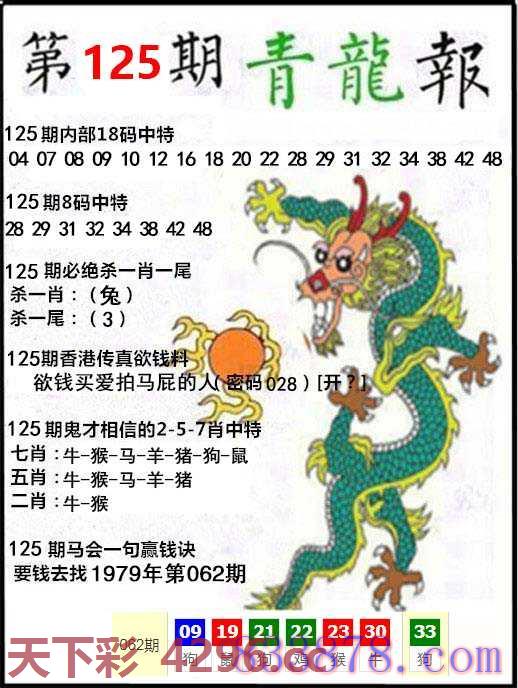 第125期青龍報
125期内部18码中特
04 07 08 09 10 12 16 18 20 22 28 29 31 32 34 38 42 48
125期8码中特
28 29 31 32 34 38 42 48
125期必绝杀一肖一尾
杀一肖：（兔）
杀一尾：（3）
125期香港传真欲钱料
欲钱买爱拍马屁的人（密码028）[开？]
125期鬼才相信的2-5-7肖中特
七肖：牛-猴-马-羊-猪-狗-鼠
五肖：牛-猴-马-羊-猪
二肖：牛-猴
125期马会一句赢钱诀
要钱去找1979年第062期
062期 09 19 21 22 23 30 33
狗 鼠 狗 鸡 猴 牛 狗
天下彩 4296.cc